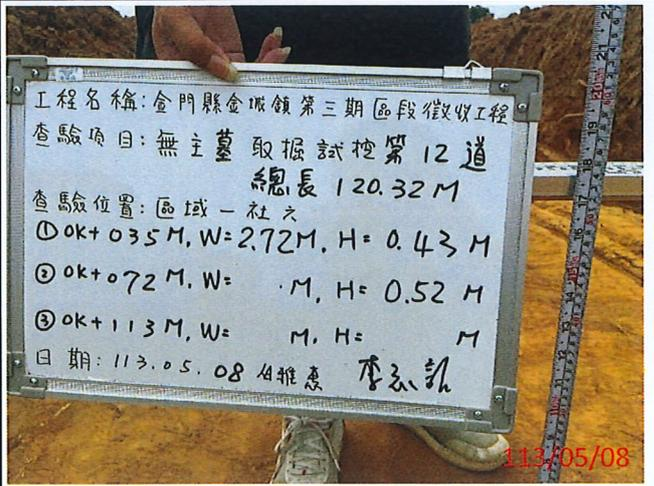 工程名稱:金門縣金城鎮第三期區段徵收工程
查驗項目:無主墓取掘試挖第12道
總長120.32M
查驗位置:區域一社六
①0K+035M,W=2.72M,H=0.43M
②0K+072M,W= .M,H=0.52M
③0K+113M,W= M,H= M
日期:113.05.08 雅惠 李
113/05/08